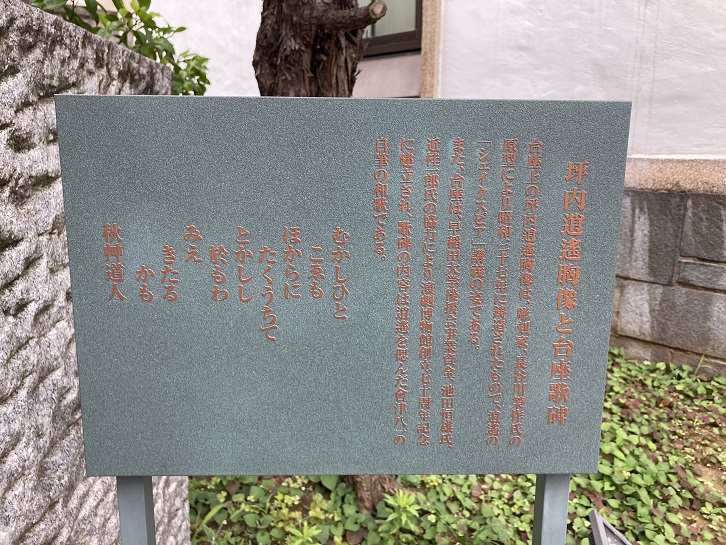 坪内逍遙胸像と台座歌碑
台座上の坪内逍遙胸像は、彫刻家、長谷川栄作氏の
原型により昭和三十七年に鋳造されたもので、逍遙の
「シェイクスピヤ」講義の姿である。
また、台座は、早稲田大学後援会千葉貢金、池田恒雄氏、
近祥一郎氏の醵金により演劇博物館創立七十周年記念
に建立され、歌碑の内容は逍遙を偲んだ會津八一の
自筆の和歌である。
むかしひと
こゑも
ほからに
たくうちて
とかしし
於もわ
みえ
きたる
かも
秋艸道人